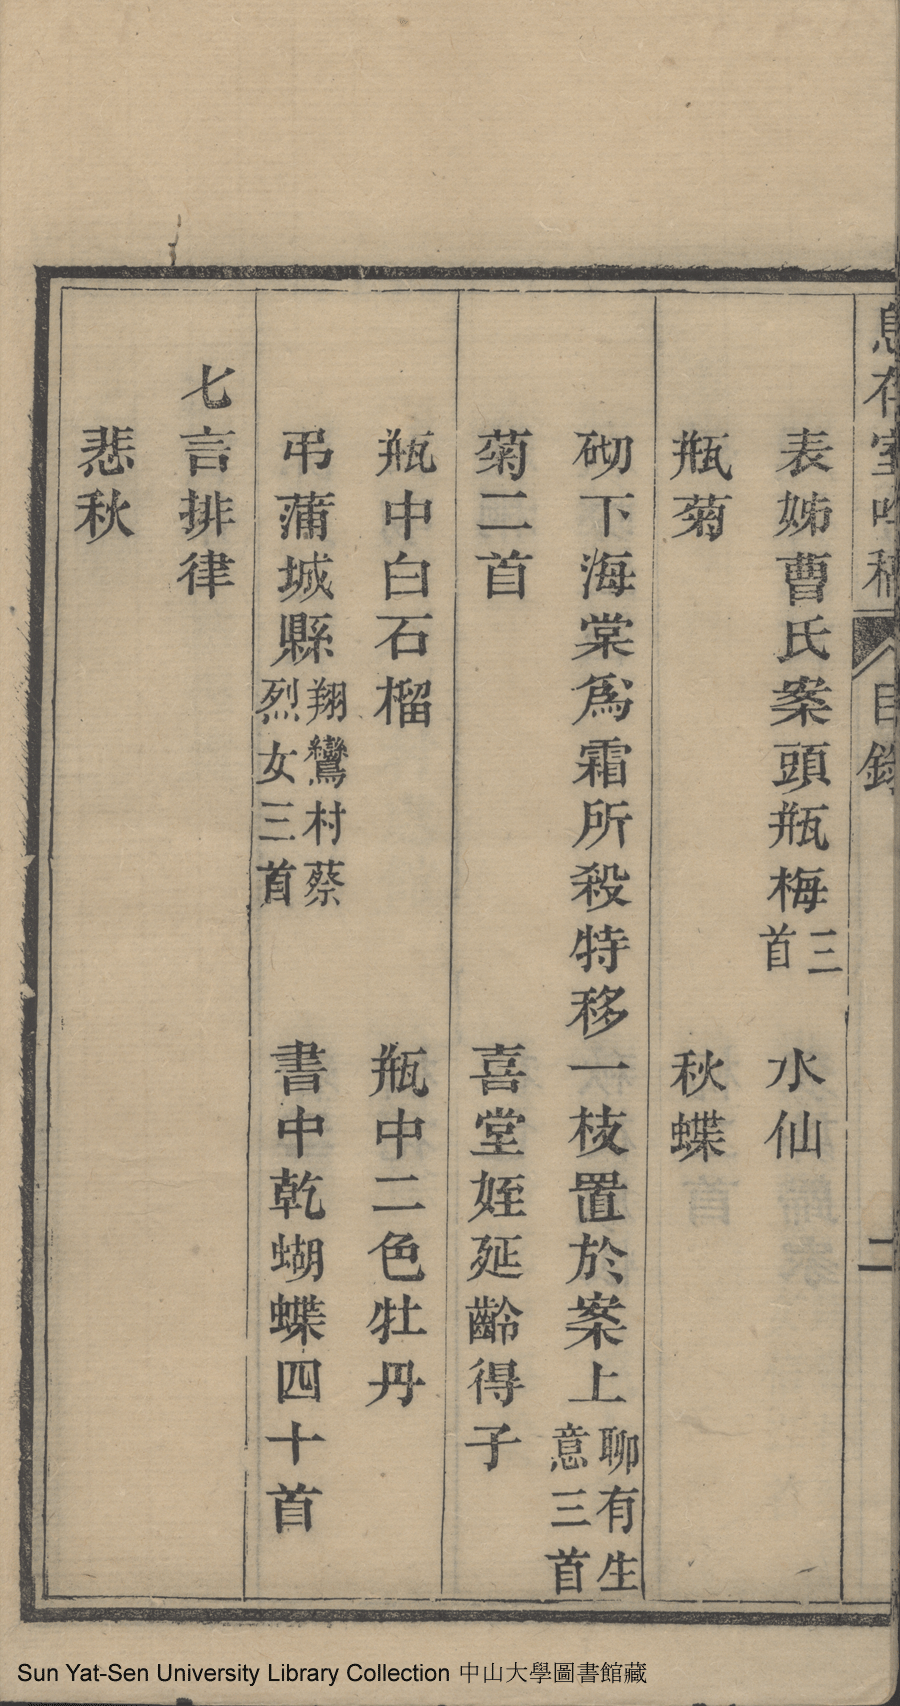 息存室吟稿 目錄 二
表姊曹氏案頭瓶梅三首 水仙
瓶菊 秋蝶
砌下海棠為霜所殺特移一枝置於案上聊有生意三首
菊二首 喜堂姪延齡得子
瓶中白石榴 瓶中二色牡丹
弔蒲城縣翔鸞村蔡烈女三首 書中乾蝴蝶四十首
七言排律
悲秋
Sun Yat-Sen University Library Collection 中山大學圖書館藏